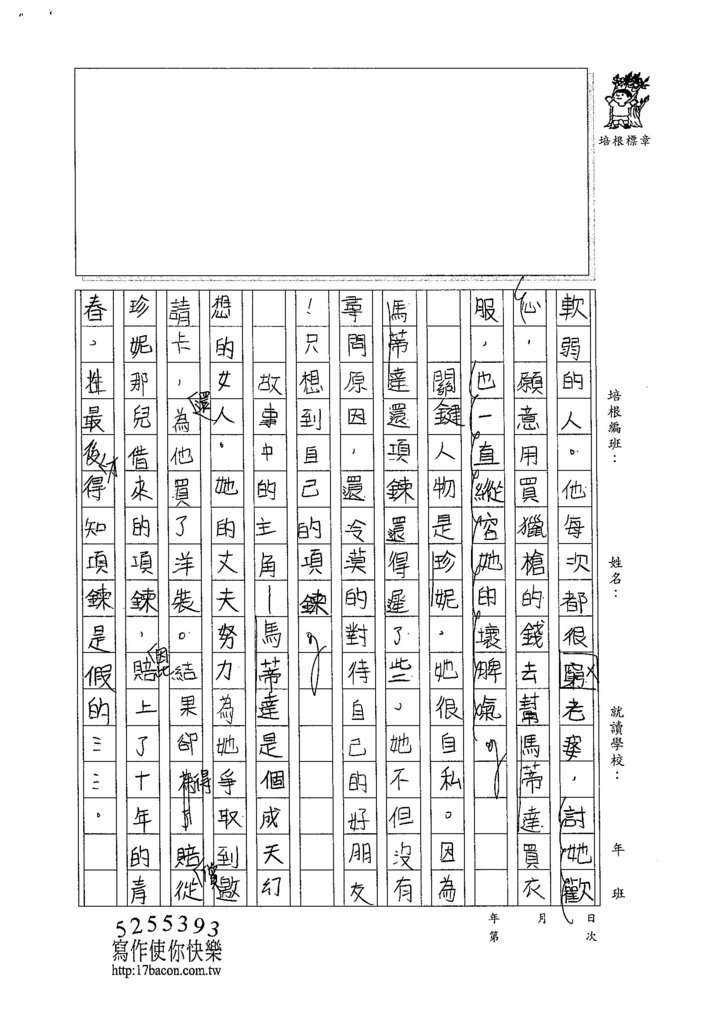 培根標章
培根編班：
姓名：
就讀學校：
年
班
日
月
年
次
第
軟弱的人。他每次都很窮老婆，討她歡
心，願意用買獵槍的錢去幫馬蒂達買衣
服，也一直縱容她的壞脾氣。
關鍵人物是珍妮。她很自私。因為
馬蒂達還項鍊還得遲了些，她不但沒有
尋問原因，還冷漠的對待自己的好朋友
！只想到自己的項鍊。
故事中的主角—馬蒂達是個成天幻
想的女人。她的丈夫努力為她爭取到邀
請卡，還為他買了洋裝。結果卻得賠償從
珍妮那兒借來的項鍊，因此賠上了十年的青
春，在最後才得知項鍊是假的……。
5255393
寫作使你快樂
http:17bacon.com.tw